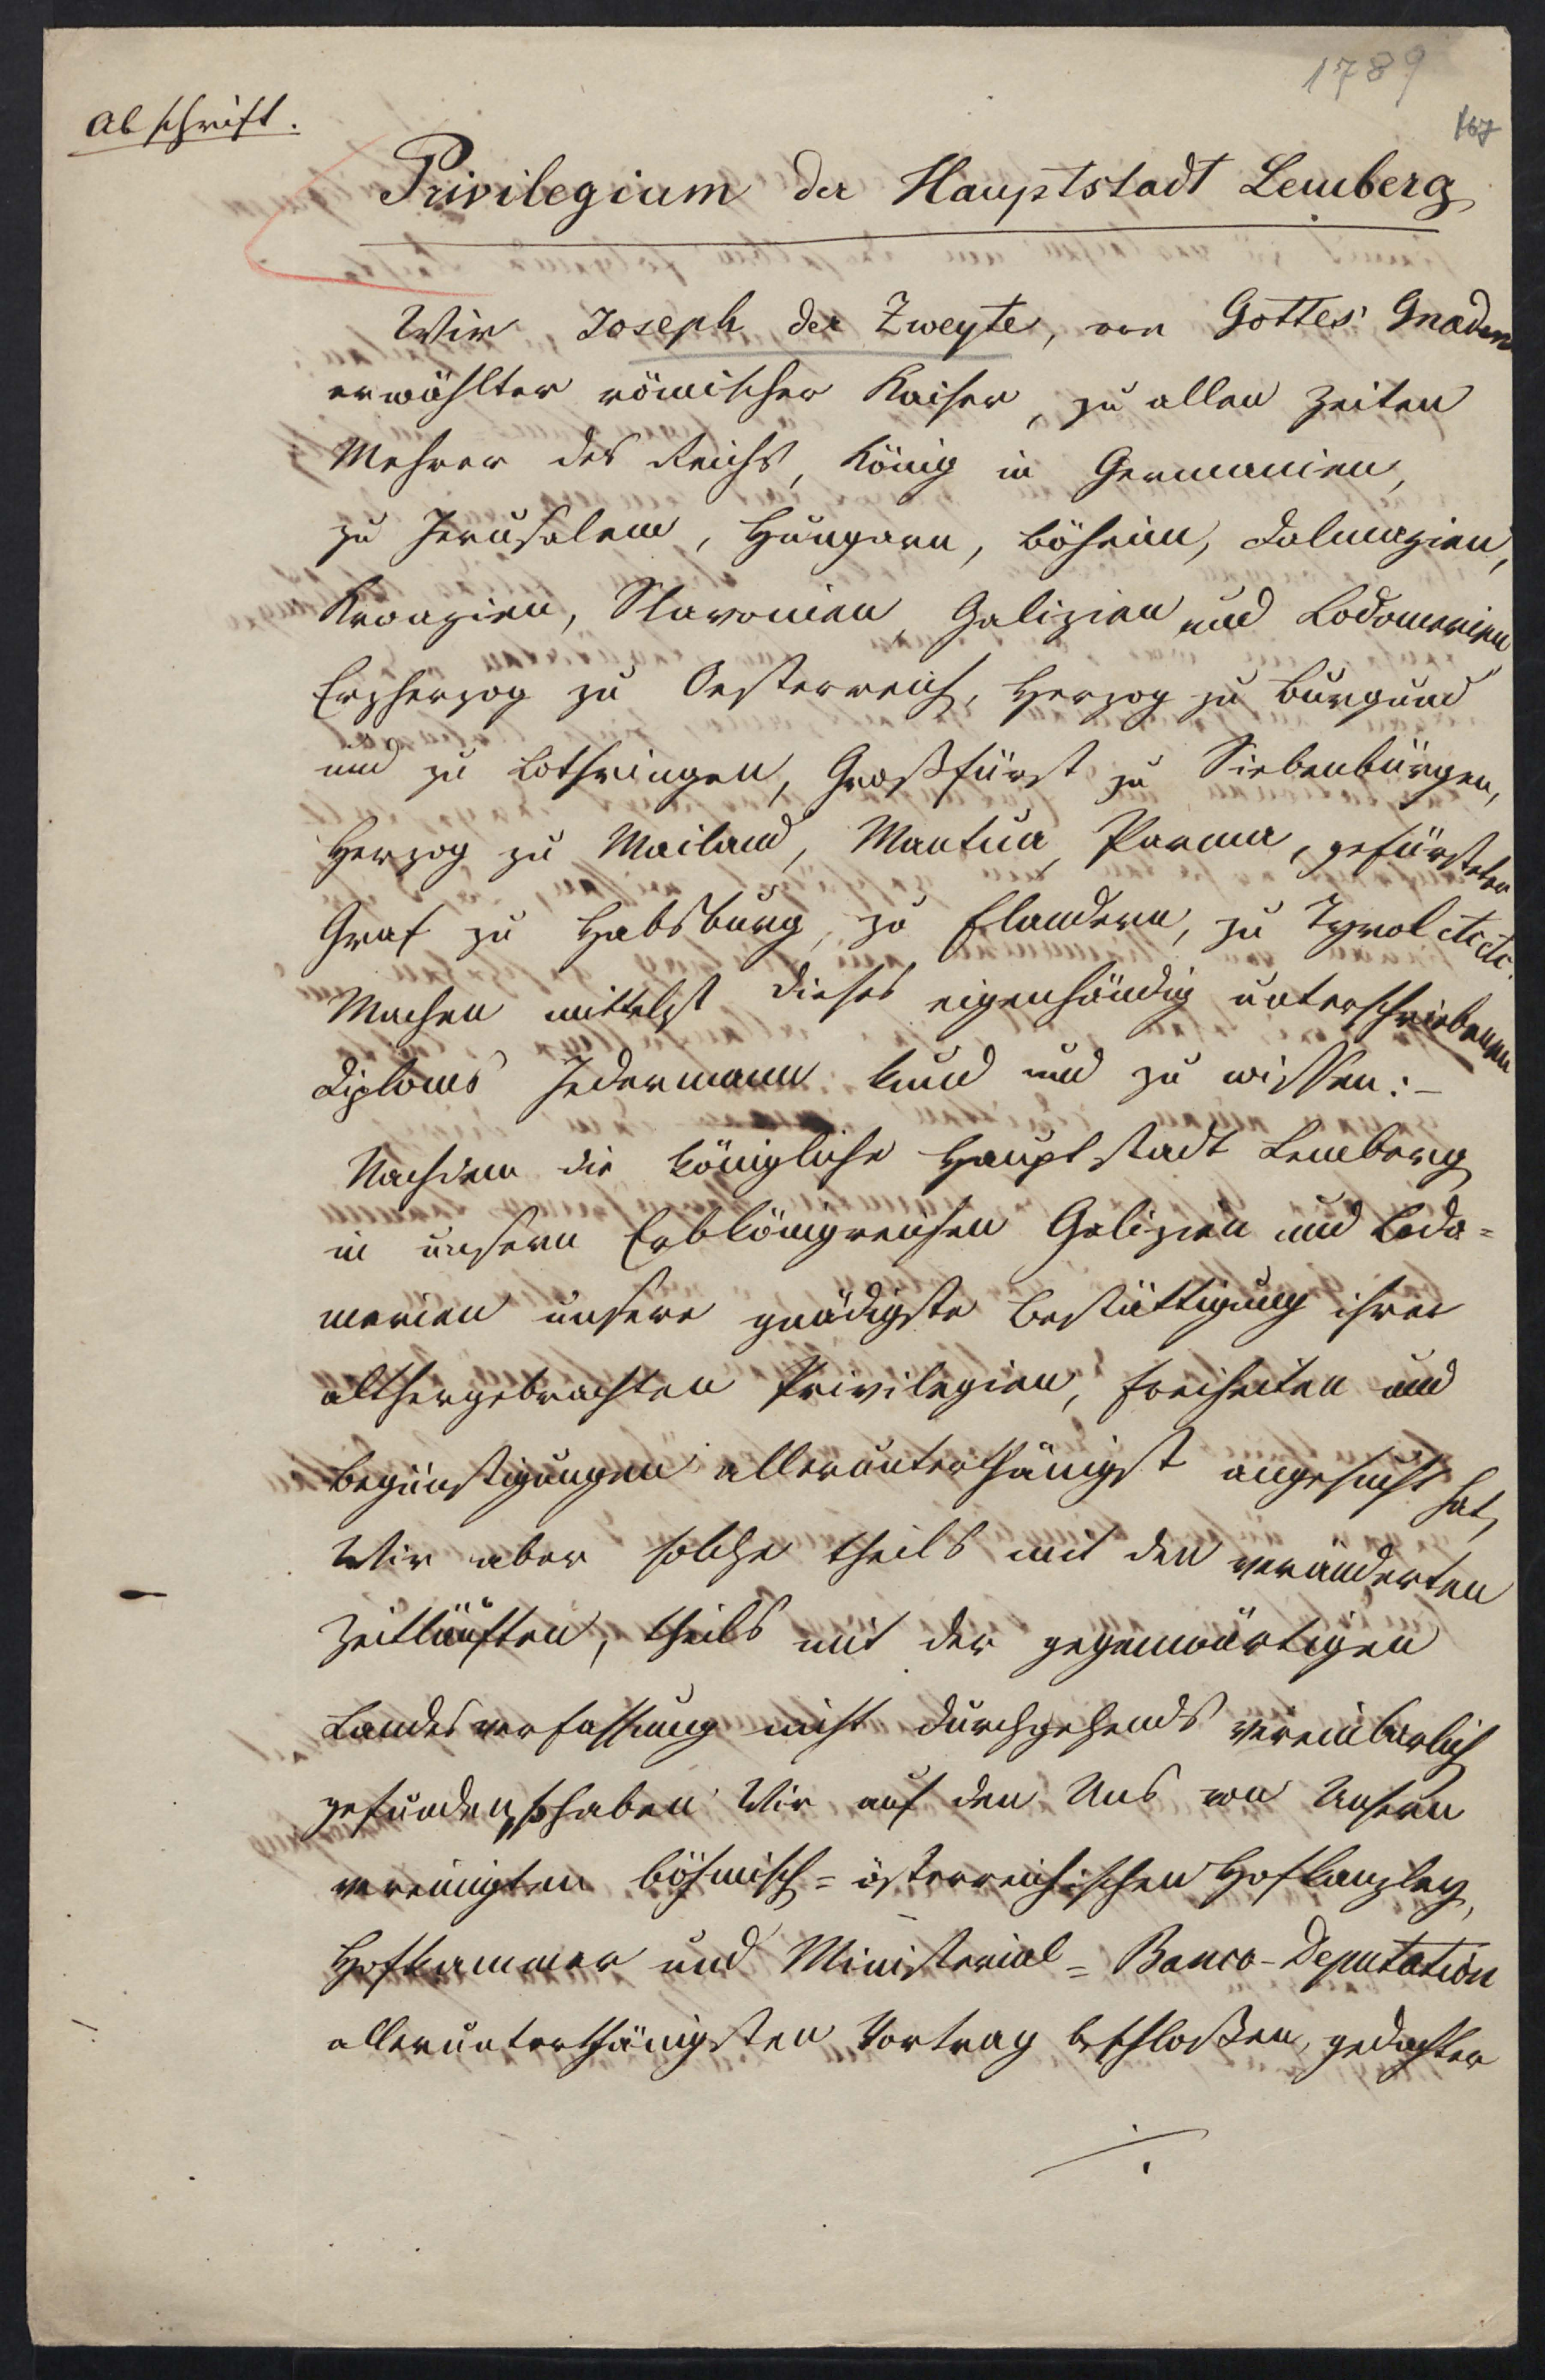 1789
167
Abschrift.
Privilegium der Hauptstadt Lemberg
Wir Joseph der Zweyte, von Gottes Gnaden
erwählter römischer Kaiser, zu allen Zeiten
Mehrer des Reichs, König in Germanien,
zu Jerusalem, Hungarn, Böheim, Dalmazien,
Kroazien, Slavonien, Galizien und Lodomerien
Erzherzog zu Oesterreich, Herzog zu Burgund
und zu Lothringen, Großfürst zu Siebenbürgen,
Herzog zu Mailand, Mantua, Parma, gefürsteter
Graf zu Habsburg, zu Flandern, zu Tyrol etc etc.
Machen mittelst dieses eigenhändig unterschriebenen
Diploms Jedermann kund und zu wissen:-
Nachdem die königliche Hauptstadt Lemberg
in unsern Erbkönigreichen Galizien und Lodo=
merien unsere gnädigste Bestättigung ihrer
althergebrachten Privilegien, Freiheiten und
Begünstigungen allerunterthänigst angesucht hat,
Wir aber solche theils mit den veränderten
Zeitläuften, theils mit der gegenwärtigen
Landesverfassung nicht durchgehends vereinbarlich
gefunden, so haben Wir auf den Uns von Unsern
vereinigten böhmisch=österreichischen Hofkanzley,
Hofkammer und Ministerial=Banco-Deputation
allerunterthänigsten Vortrag beschloßen, gedachter
./.